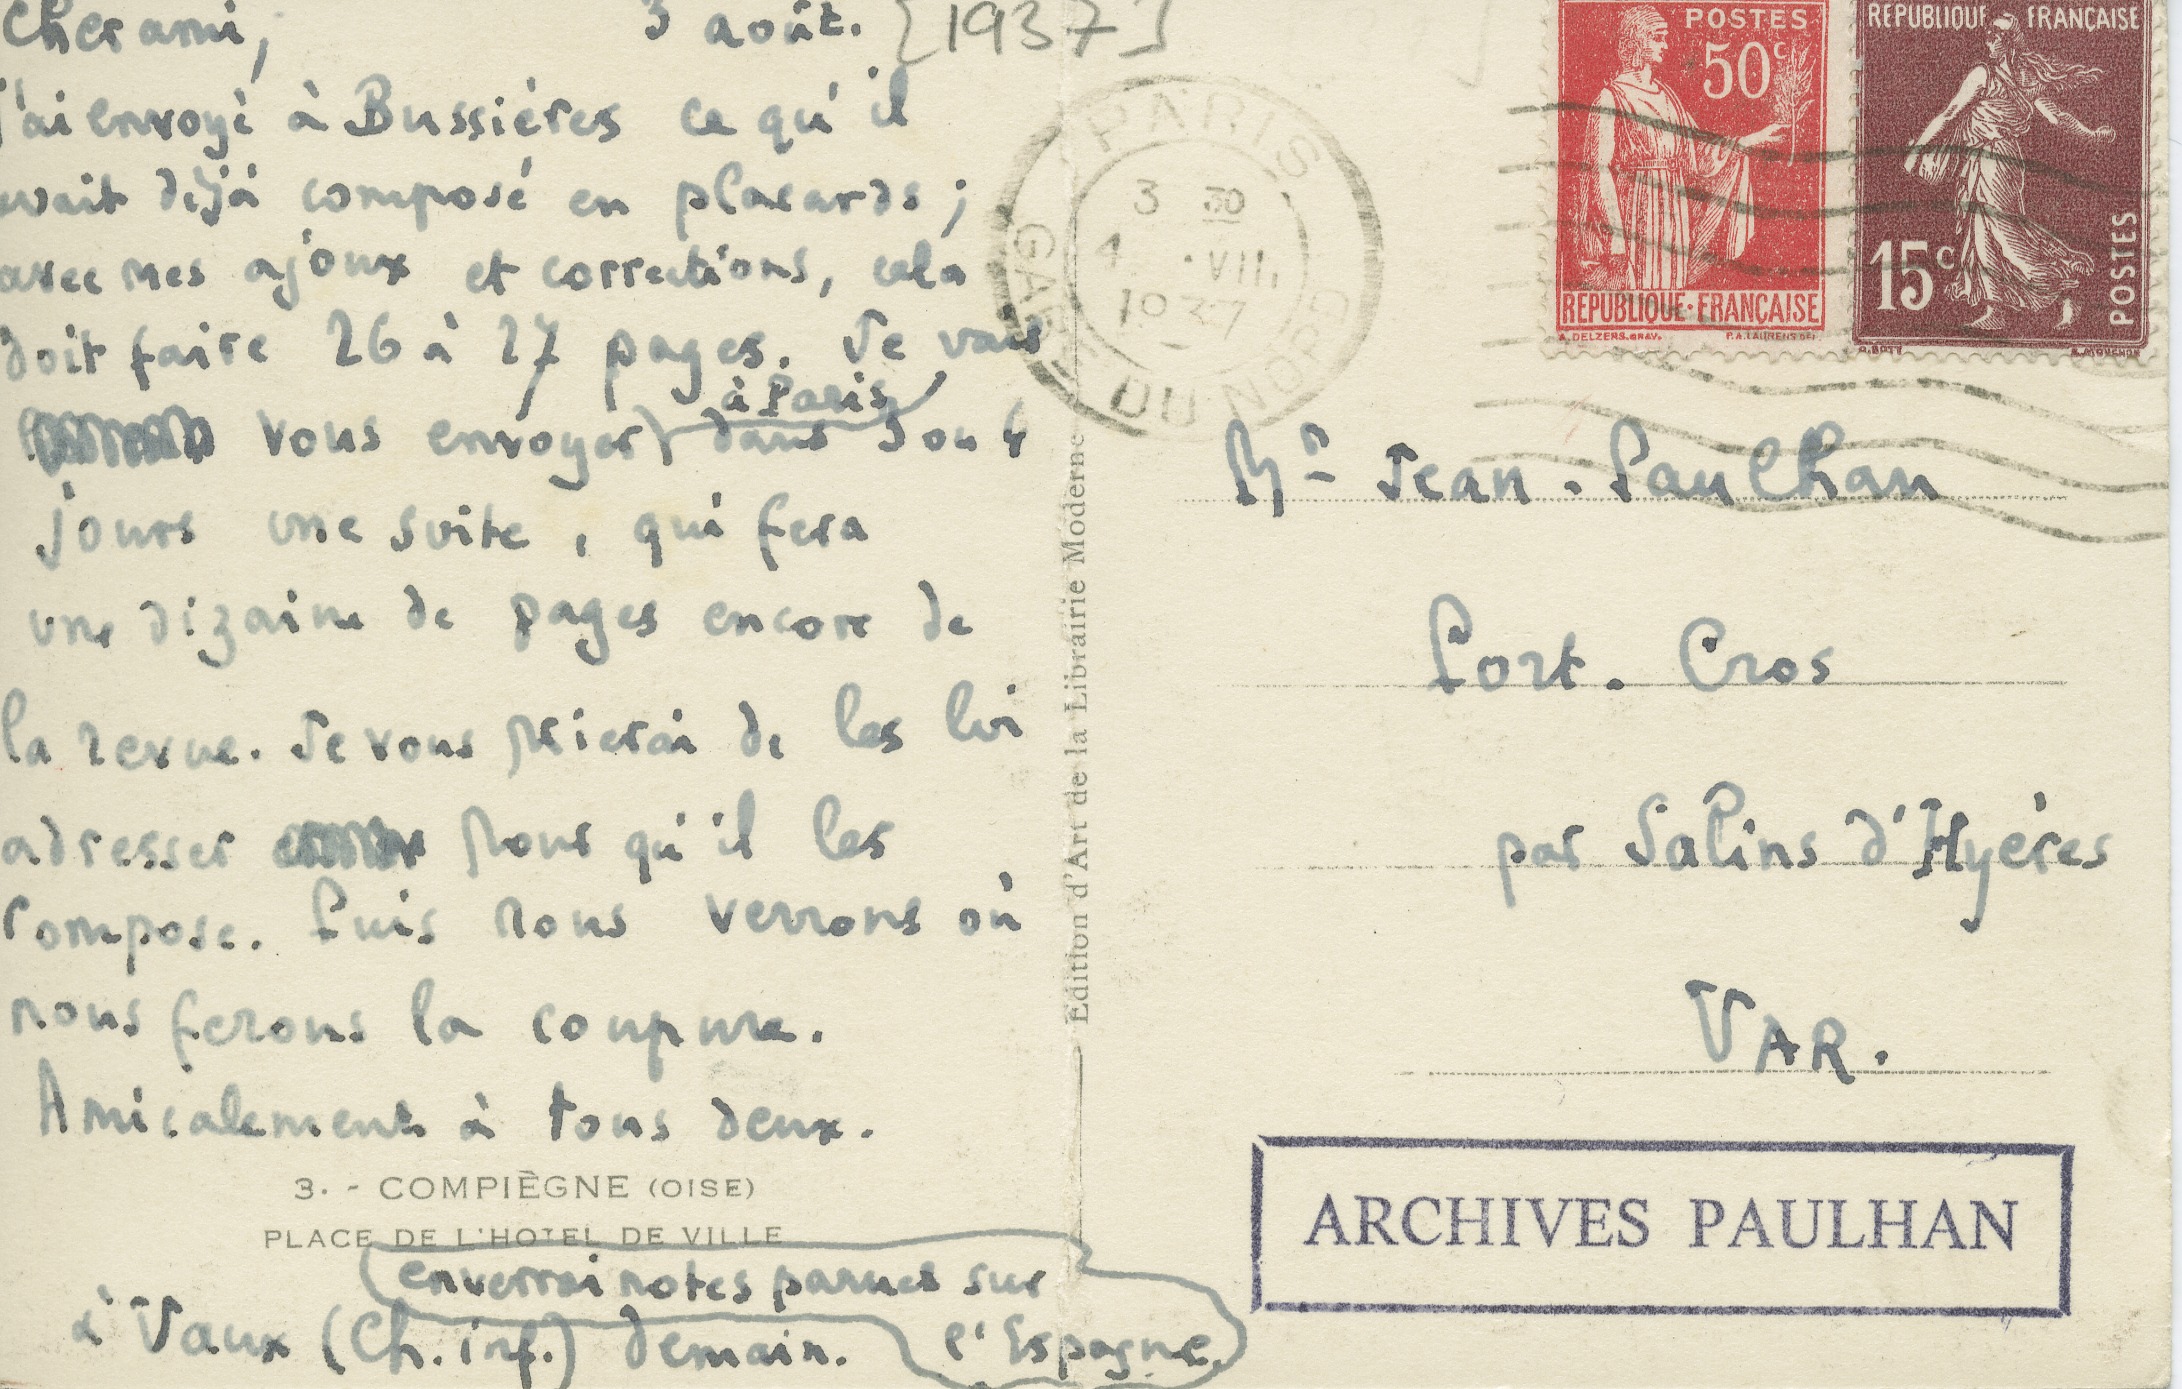 Cher ami, 3 août. [1937]
J'ai envoyé à Bussières ce qu'il
avait déjà composé en placards ;
avec mes ajoux et corrections, cela
doit faire 26 à 27 pages. Je vais
à Paris
vous envoyer dans 3 ou 4
jours une suite, qui fera
une dizaine de pages encore de
la revue. Je vous prierai de les lui
adresser pour qu'il les
compose. Puis nous verrons où
nous ferons la coupure.
Amicalement à tous deux.
3. - COMPIÈGNE (OISE)
PLACE DE L'HOTEL DE VILLE
enverrai notes parues sur
l'Espagne.
à Vaux (Ch. inf.) demain.
Edition d'Art de la Librairie Moderne
PARIS
GARE DU NORD
3 30
4 VIII
1937
POSTES
50c
REPUBLIQUE·FRANÇAISE
REPUBLIQUE FRANÇAISE
15c
POSTES
Mr Jean. Paulhan
Port. Cros
par Salins d'Hyères
VAR.
ARCHIVES PAULHAN